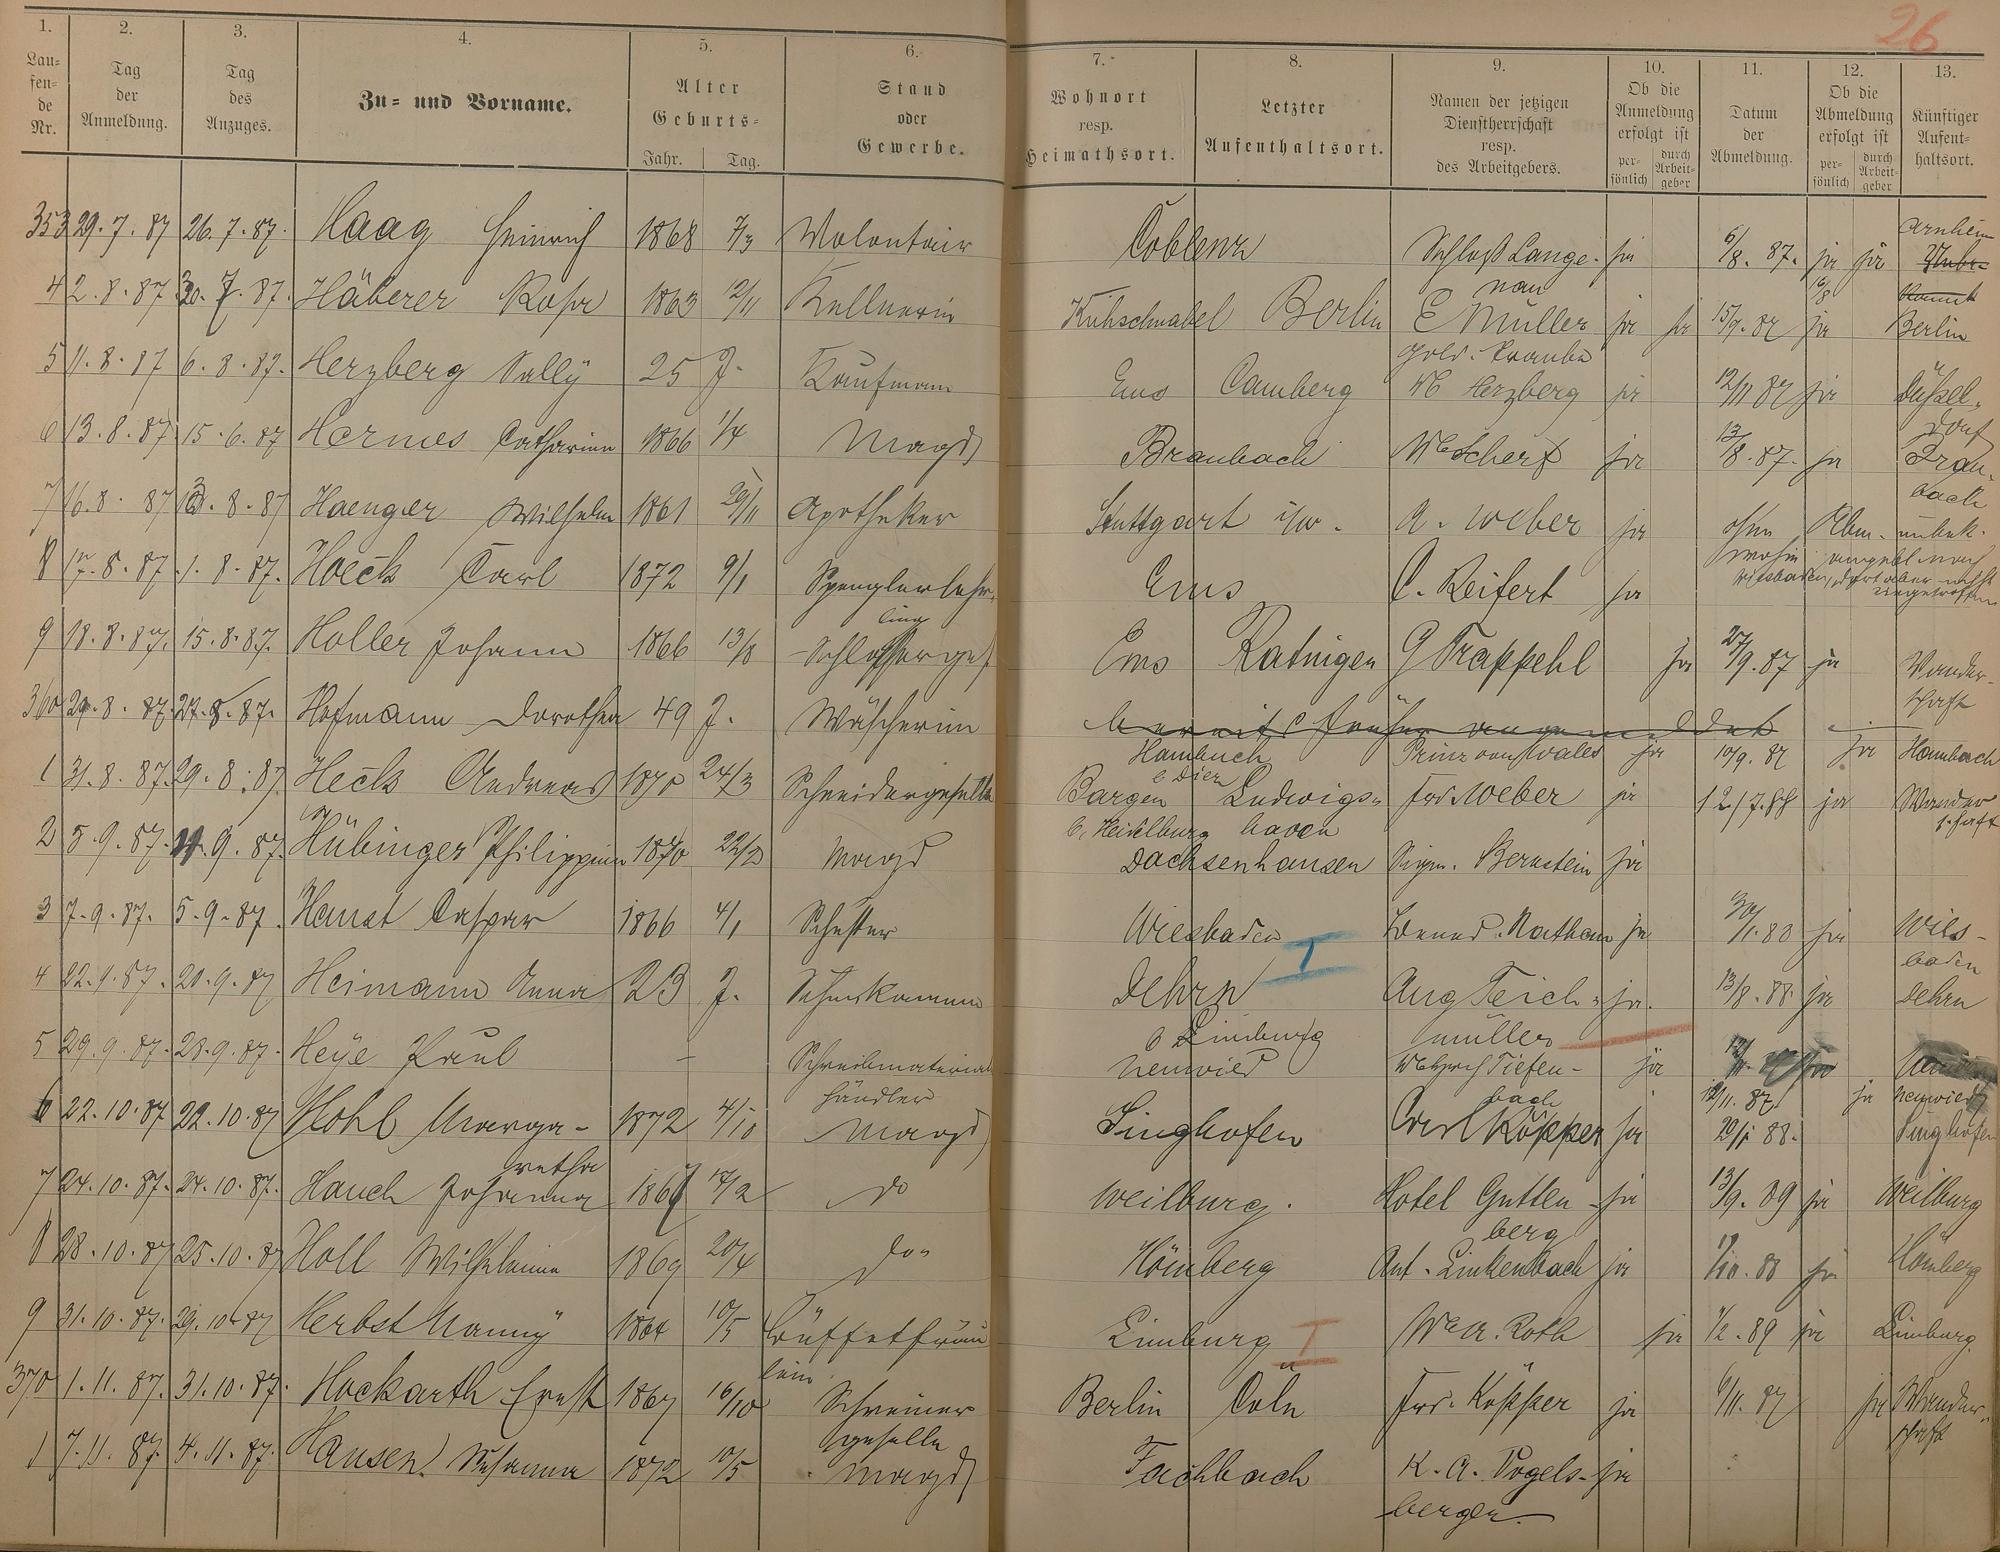 26
1. 2. 3. 4. 5. 6. 7. 8. 9. 10. 11. 12. 13.
Lau=fen=de Nr. Tag der Anmeldung. Tag des Anzuges. Zu= und Vorname. Alter Geburts= Jahr. Tag. Stand oder Gewerbe. Wohnort resp. Heimathsort. Letzter Aufenthaltsort. Namen der jetzigen Dienstherrschaft resp. des Arbeitgebers. Ob die Anmeldung erfolgt ist per=sönlich durch Arbeit=geber Datum der Abmeldung. Ob die Abmeldung erfolgt ist per=sönlich durch Arbeit=geber Künftiger Aufent=haltsort.
353 29.7.87 26.7.87. Haag Heinrich 1868 7/3 Volontair Coblenz Schloß Lange-nau ja 6/8. 87. ja ja Arnheim
4 2.8.87 30.7.87. Häberer Rosa 1863 12/11 Kellnerin Kuhschnabel Berlin E Müller gold. Traube ja ja 15/9. 87 ja Berlin
5 11.8.87 6.8.87. Herzberg Sally 25 J. Kaufmann Ems Camberg We Herzberg ja 12/11 87 ja Düssel-dorf
6 13.8.87 15.6.87 Hermes Catharina 1866 1/4 Magd Braubach We Scherf ja 13/8. 87. ja Brau-bach
7 16.8.87 13.8.87 Haenger Wilhelm 1861 29/11 Apotheker Stuttgart i/W. A. Weber ja ohne Abm. unbek.
8 17.8.87. 1.8.87. Hoeck Carl 1872 9/1 Spenglerlehr-ling Ems C. Reifert ja wohin angebl. nach Wiesbaden, dort aber nicht eingetroffen
9 18.8.87. 15.8.87. Holler Johann 1866 13/8 Schlosserges Ems Ratingen G Trappehl ja 27/9. 87 ja Wander-schaft
360 29.8.87. 27.8.87. Hofmann Dorothea 49 J. Wäscherin bereits früher angemeldet
Hambach b Diez Prinz von Wales ja 10/9. 87 ja Hambach
1 31.8.87. 29.8.87. Heck Andreas 1870 24/3 Schneidergeselle Bargen b. Heidelburg Ludwigs-haven Frd. Weber ja 12/7. 88 ja Wander schaft
2 5.9.87. 4.9.87. Hübinger Philippine 1870 22/2 Magd Dachsenhausen Sigm. Bernstein ja
3 7.9.87. 5.9.87. Hanst Caspar 1866 4/1 Schuster Wiesbaden Leond. Nathan ja 30/1. 88 ja Wies-baden
4 22.9.87. 20.9.87 Heimann Anna 23 J. Dehrn b Limburg Aug Teich-müller ja. 13/8. 88 ja Dehrn
5 29.9.87. 28.9.87. Heÿe Paul - Schreibmaterial händler Neuwied We Hrch Tiefen-bach ja 12/11. 87 ja Neuwied
6 22.10.87 22.10.87 Hohl Marga-retha 1872 4/10 Magd Singhofen Carl Köpper ja 20/1 88. Singhofen
7 24.10.87. 24.10.87. Hauch Johanna 1867 17/2 do Weilburg. Hotel Gutten-berg ja 13/9. 89 ja Weilburg
8 28.10.87 25.10.87 Holl Wilhelmine 1869 20/4 do. Hömberg Ant. Linkenbach ja 1/10. 88 ja Hömberg
9 31.10.87. 29.10.87 Herbst Nanny 1864 10/5 Büffetfräu lein Limburg We A. Roth ja 1/2. 89 ja Limburg.
370 1.11.87. 31.10.87. Hockarth Ernst 1867 16/10 Schreiner geselle Berlin Cöln Frd. Köpper ja 6/11. 87 ja Wander-schaft
1 7.11.87. 4.11.87. Hansen Susanna 1872 10/5 Magd Fachbach K. A. Vogels-berger ja